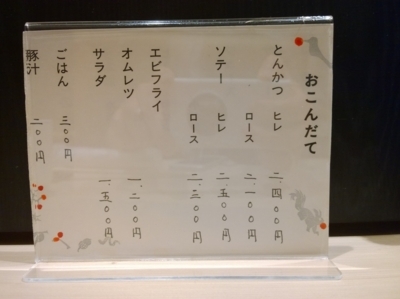 おこんだて
とんかつ ヒレ 二、四〇〇円
ロース 二、一〇〇円
ソテー ヒレ 二、五〇〇円
ロース 二、三〇〇円
エビフライ
オムレツ 一、二〇〇円
サラダ 一、五〇〇円
ごはん 三〇〇円
豚汁 二〇〇円